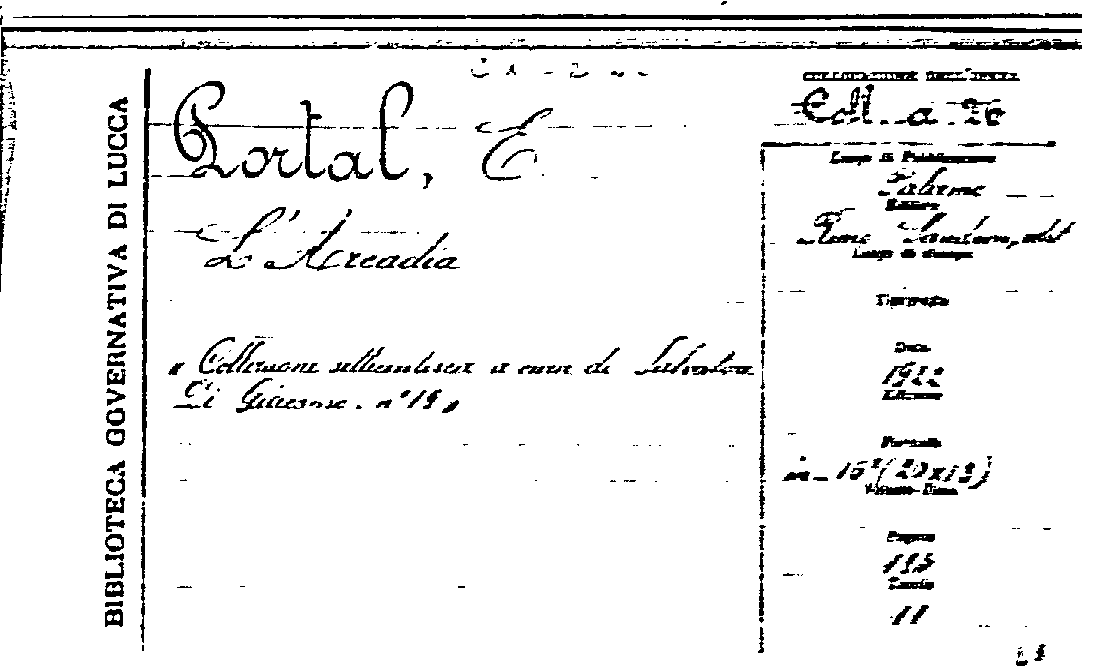 BIBLIOTECA GOVERNATIVA DI LUCCA
Portal, E.
L'Arcadia
" Collezione settecentesca a cura di Salvatore
Di Giacomo. n° 19 "
Coll. a. 26
Luogo di Pubblicazione
Palermo
Editore
Remo Sandron, edit
Luogo di stampa
Tipografia
Data
1922
Edizione
Formato
in-16°(20x13)
Volume
Pagine
Tavole
11